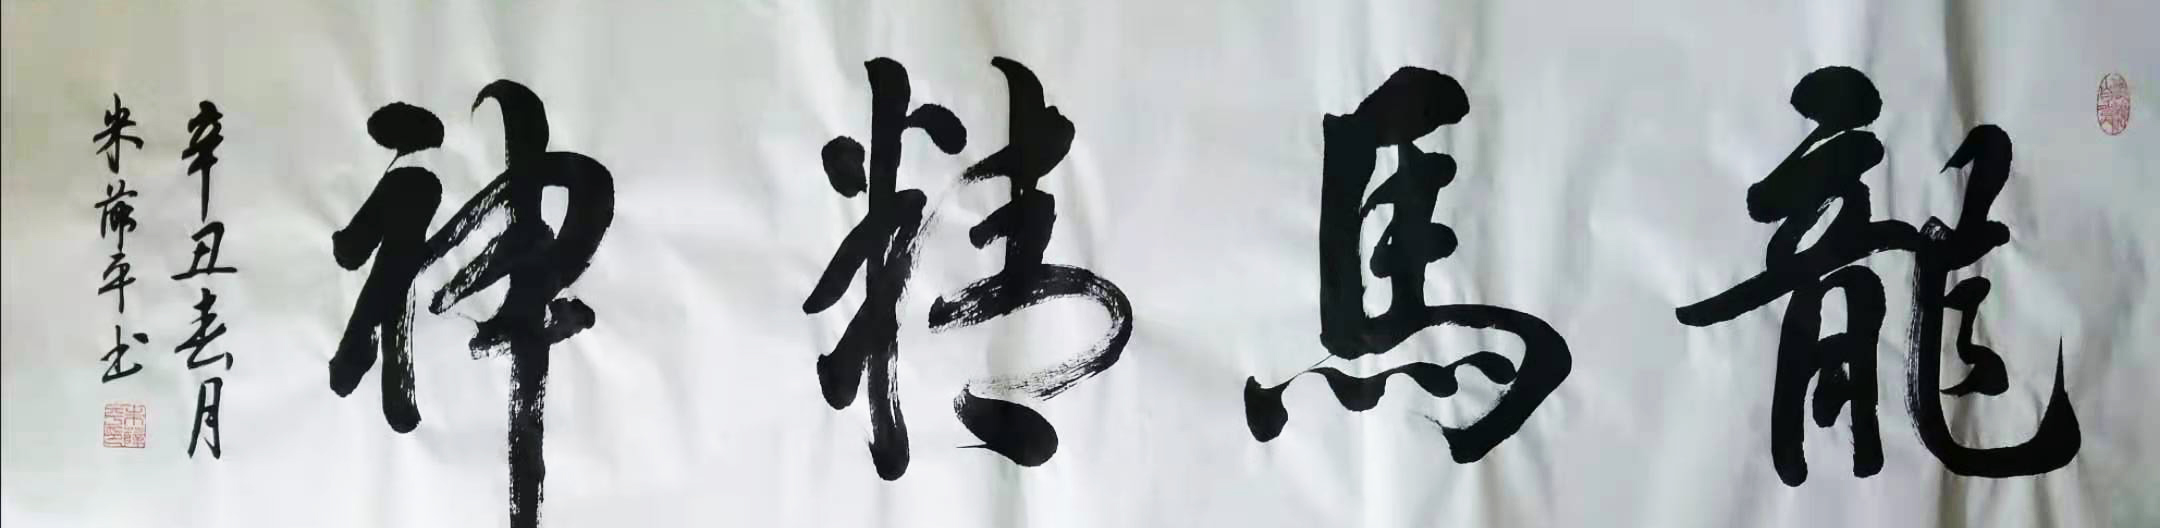 龍馬精神
辛丑春月
米萍平书